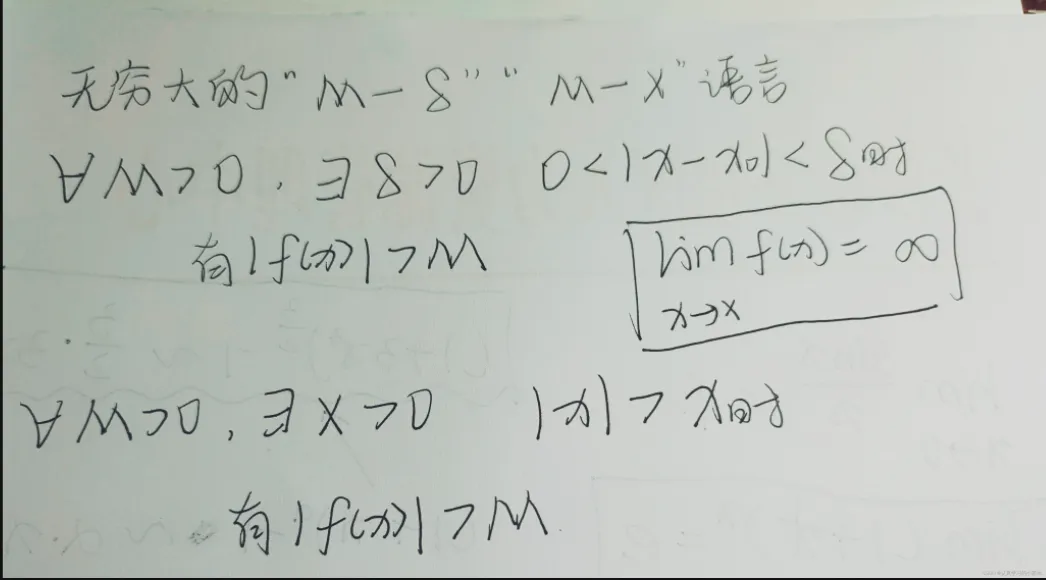 无穷大的“M-δ”“M-X”语言
∀M>0，∃δ>0 0<|x-x₀|<δ时
有|f(x)|>M
lim f(x) = ∞
x→x
∀M>0，∃X>0 |x|>X时
有|f(x)|>M